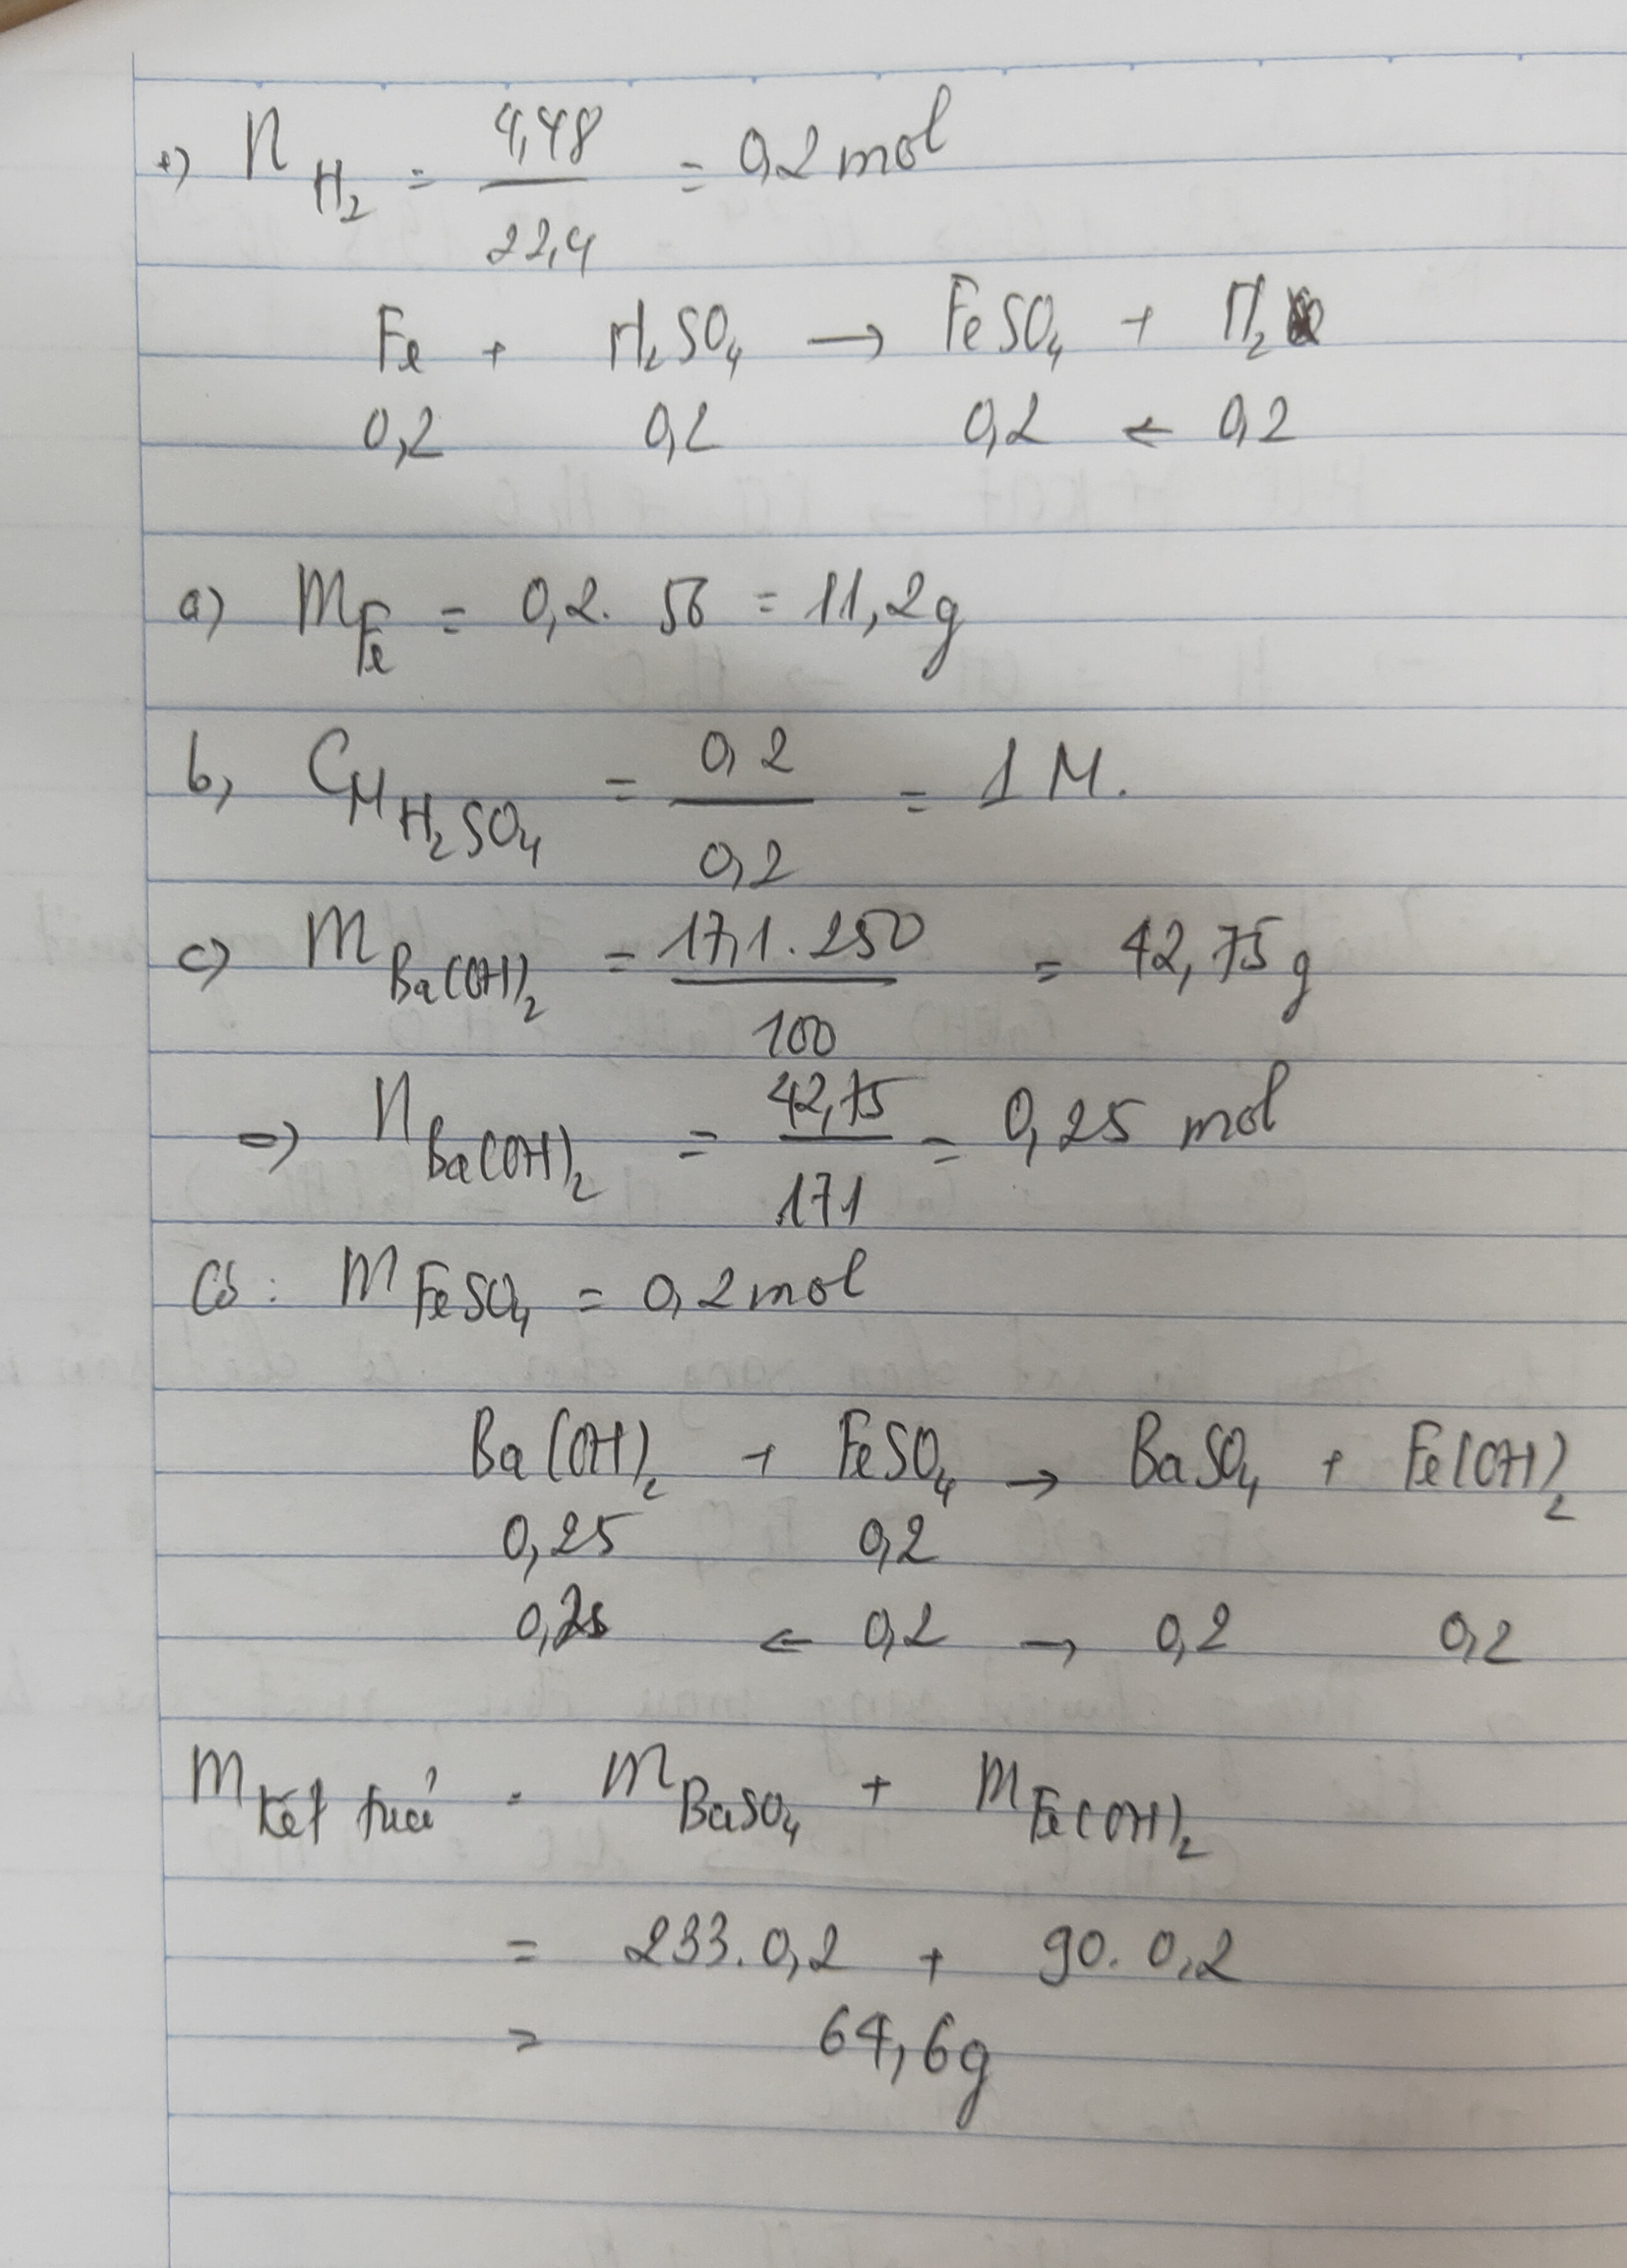 +) n H₂ = 4,48 / 22,4 = 0,2 mol
Fe + H₂SO₄ → FeSO₄ + H₂
0,2 0,2 0,2 ← 0,2
a) m Fe = 0,2. 56 = 11,2g
b, CM H₂SO₄ = 0,2 / 0,2 = 1 M.
c) m Ba(OH)₂ = 17,1. 250 / 100 = 42,75 g
=> n Ba(OH)₂ = 42,75 / 171 = 0,25 mol
Có: m FeSO₄ = 0,2 mol
Ba(OH)₂ + FeSO₄ → BaSO₄ + Fe(OH)₂
0,25 0,2
0,2 ← 0,2 → 0,2 0,2
m kết tủa = m BaSO₄ + m Fe(OH)₂
= 233. 0,2 + 90. 0,2
= 64,6g